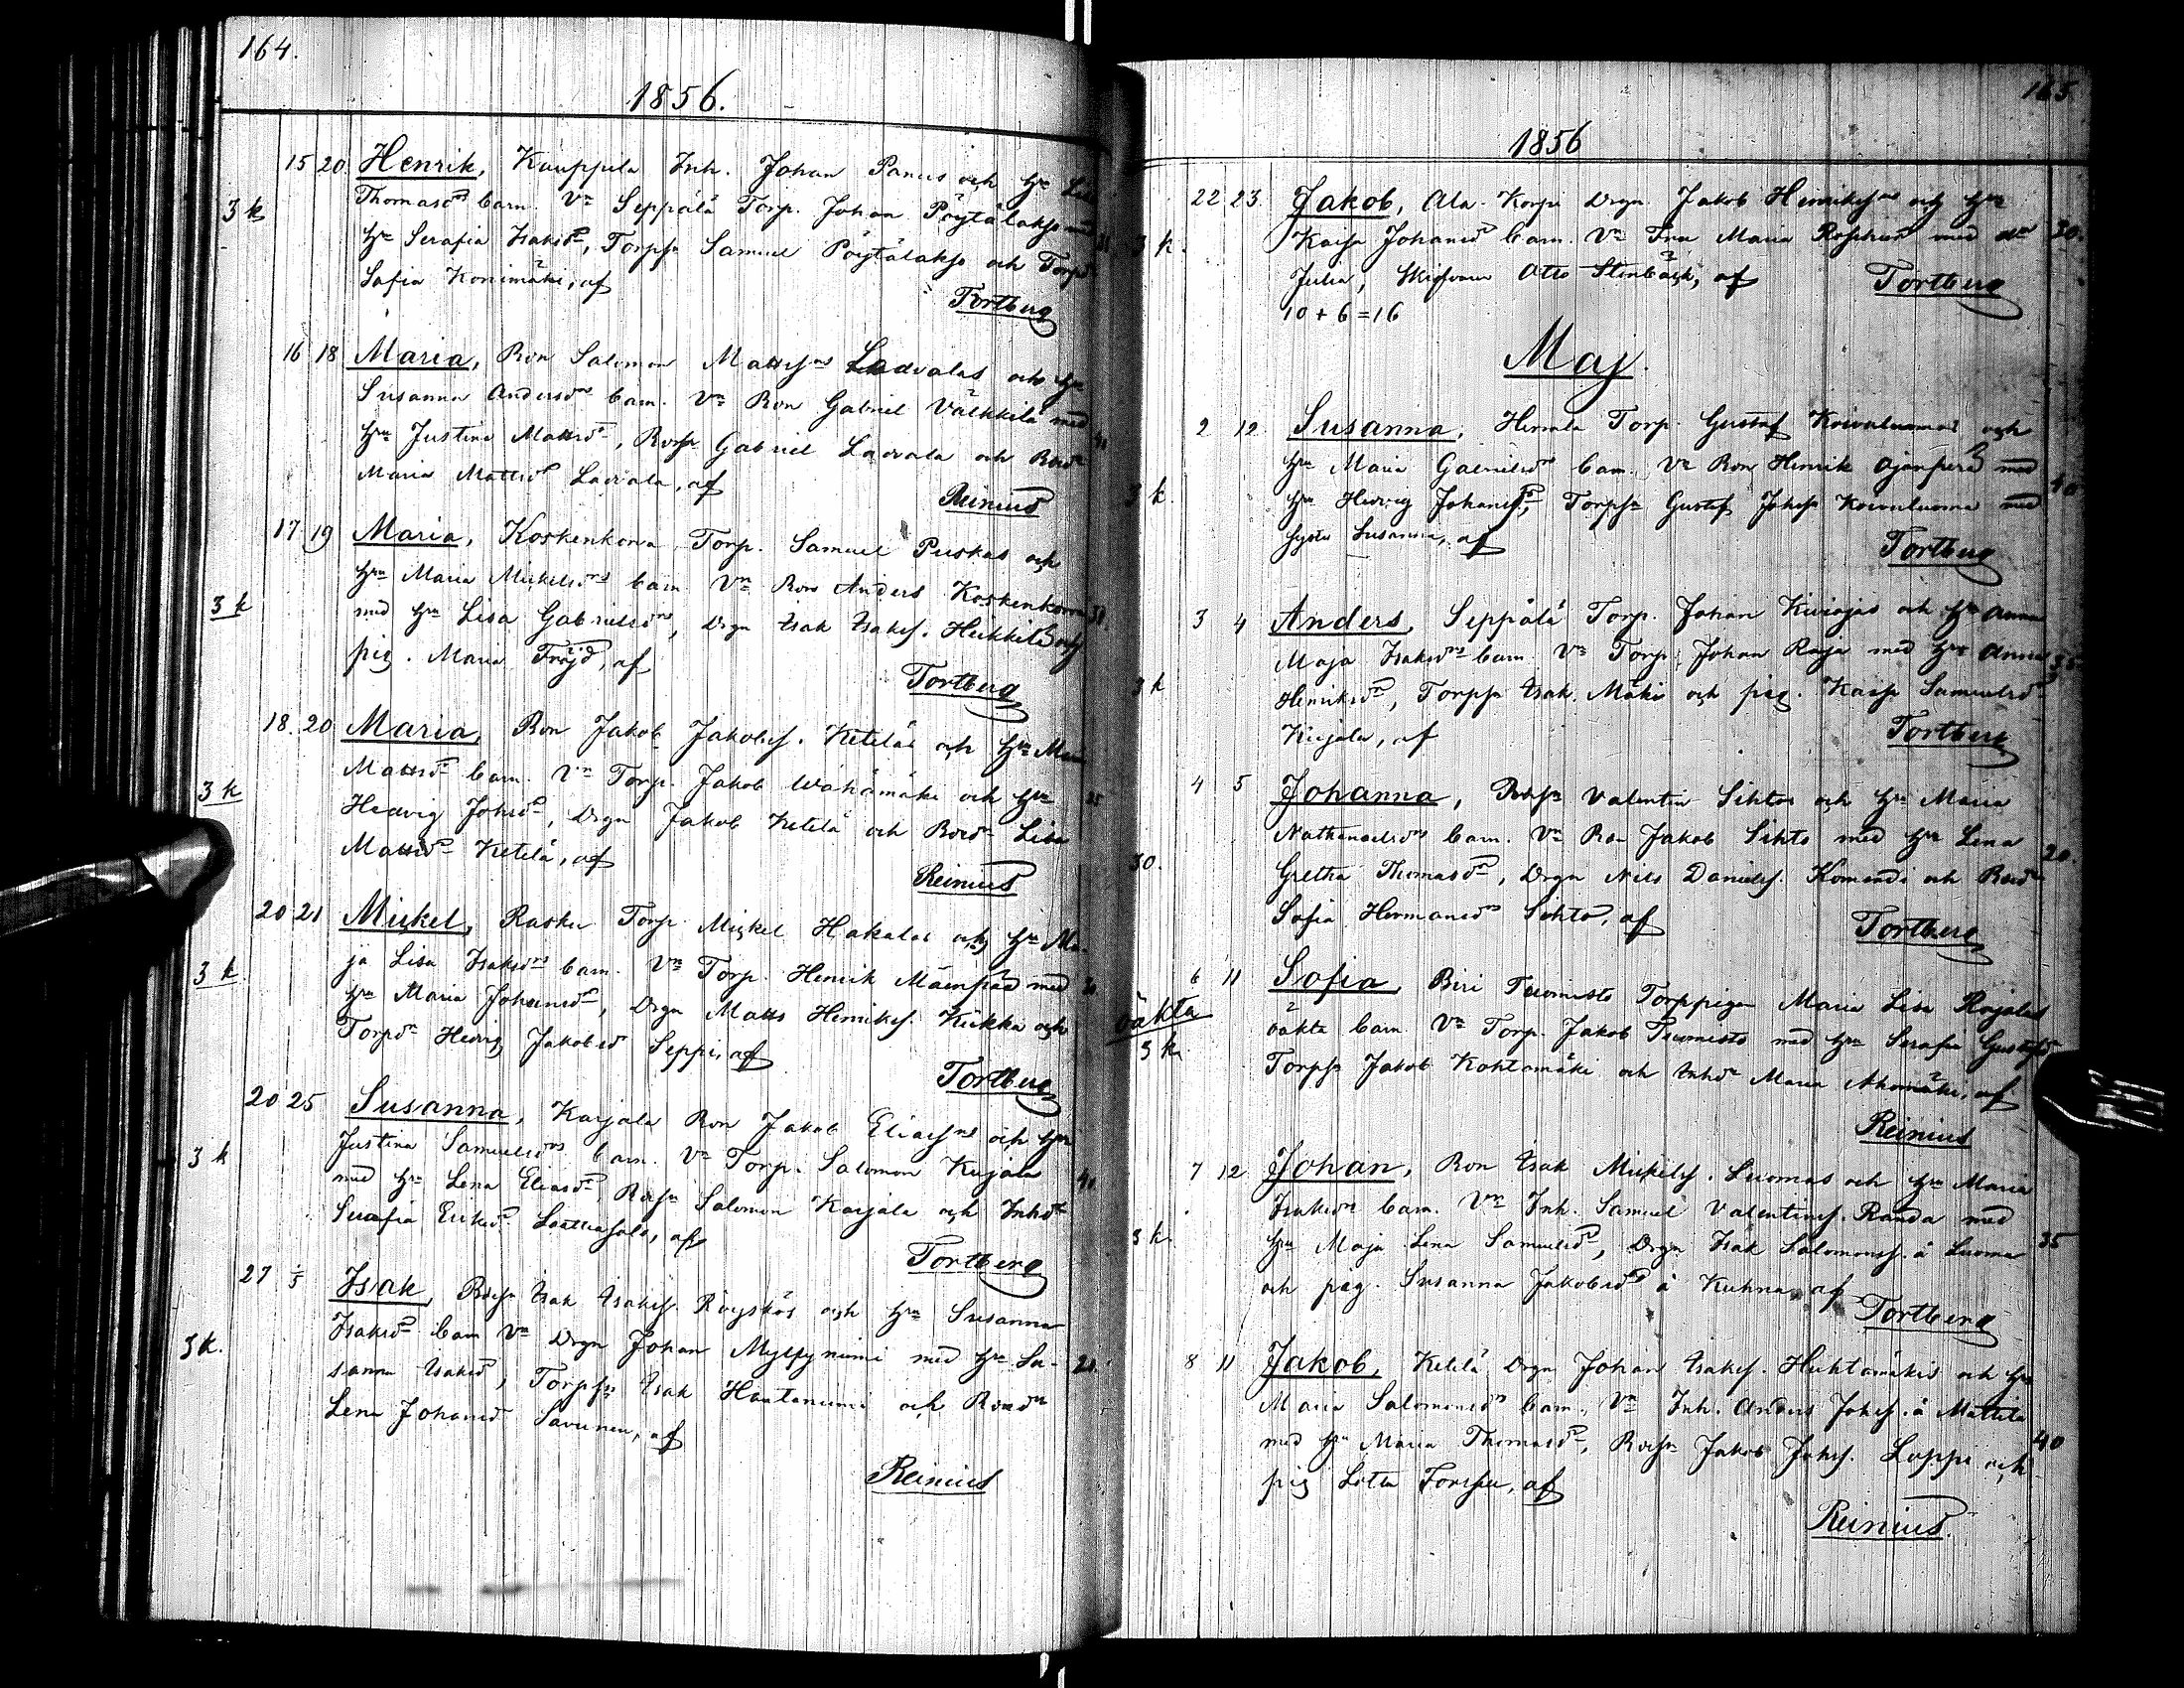 164.
1856.
15 20 Henrik, Kauppila Inh. Johan Panus och Hu Lisa
3 k Thomasdr barn. Vn Seppälä Torp. Johan Pöytälakso med
Hu Serafia Isaksdr, Torpsn Samuel Pöytälakso och Torpdr
Sofia Konimäki, af
Tortberg
16 18 Maria, Bon Salomon Mattsns Ladvalas och Hu
Susanna Andersdrs barn. Vn Bon Gabriel Välkkilä med
Hu Justina Mattsdr, Bosn Gabriel Ladvala och Bodr
Maria Mattsdr Ladvala, af
Reinius
17 19 Maria, Koskenkorva Torp. Samuel Puskas och
Hu Maria Mickelsdrs barn. Vn Bon Anders Koskenkorva
3 k med Hu Lisa Gabrielsdr, Drgn Isak Isakss. Heikkilä och
pig. Maria Fröjd, af
Tortberg
18. 20 Maria, Bon Jakob Jakobss. Keteläs och Hu Maria
Mattsdr barn. Vn Torp. Jakob Wähämäki och Hu 25
3 k Hedvig Johsdr, Drgn Jakob Ketelä och Bodr Lisa
Mattsdr Ketelä, af
Reinius
20 21 Mickel, Rasku Torp Mickel Hakalas och Hu Ma-
ja Lisa Isaksdrs barn. Vn Torp. Henrik Mäenpää med
3 k. Hu Maria Johansdr, Drgn Matts Henrikss. Kiikka och
Torpdr Hedvig Jakobsd Seppi, af
Tortberg
20 25 Susanna, Karjala Bon Jakob Eliassns och Hu
Justina Samuelsdrs barn. Vn Torp. Salomon Kujala
3 k med Hu Lena Eliasdr, Bosn Salomon Karjala och Inhdr 40
Serafia Eriksdr, af
Tortberg
27 1/5 Isak, Bosn Isak Isakss Röyskös och Hu Susanna
Isaksdr barn Vn Drgn Johan Myllyniemi med Hu Su-
3 k. sanna Isaksd, Torpsn Isak Hautaniemi och Bondr 20.
Lena Johansd Savunen, af
Reinius
165
1856
22 23. Jakob, Ala-Korpi Drgn Jakob Henrikssns och Hu
3 k. Kaisa Johansdr barn. Vn Fru Maria med 30.
Julia, Otto Stenbäck, af Tortberg
10 + 6 = 16
Maj.
2 12 Susanna, Torp. Gustaf Koivuluomas och
Hu Maria Gabrielsdrs barn. Vn Bon Henrik Ajanperä med
3 k. Hu Hedvig Johansdr, Torpsn Gustaf Johss Koivuluoma med 40
syster Susanna, af
Tortberg
3 4 Anders, Seppälä Torp. Johan Kiviojas och Hu Anna
Maja Isaksdrs barn. Vn Torp. Johan Raja med Hu Anna 35
3 k Henriksdr, Torpsn Isak Mäki och pig. Kaisa Samuelsdr
Kujala, af Tortberg
4 5 Johanna, Bosn Valentin Sihtos och Hu Maria
Nathanaelsdrs barn. Vn Bon Jakob Sihto med Hu Lena
30. Gretha Thomasdr, Drgn Nils Danielss. Komsi och Bodr 20.
Sofia Hermansdr Sihto, af
Tortberg
6 11 Sofia, Biri Tuomisto Torppigan Maria Lisa Rajalas
oäkta oäkta barn. Vn Torp. Jakob Tuomisto med Hu Serafia Gustafsdr
3 k. Torpsn Jakob Kohtamäki och Inhdr Maria Ahomäki, af
Reinius
7 12 Johan, Bon Isak Mickelss. Luomas och Hu Maria
Isaksdrs barn. Vn Inh. Samuel Valentinss. Randa med
3 k. Hu Maja Lena Samuelsdr, Drgn Isak Salomonss. å Luoma 35
och pig. Susanna Jakobsdr å Kuhna, af
Tortberg
8 11 Jakob, Ketelä Drgn Johan Isakss. Huhtamäkis och Hu
Maria Salomonsdrs barn. Vn Inh. Anders Johss. å Mattila
med Hu Maria Thomasdr, Bosn Jakob Johss. Luppa och 40
pig Lotta Forssu, af
Reinius